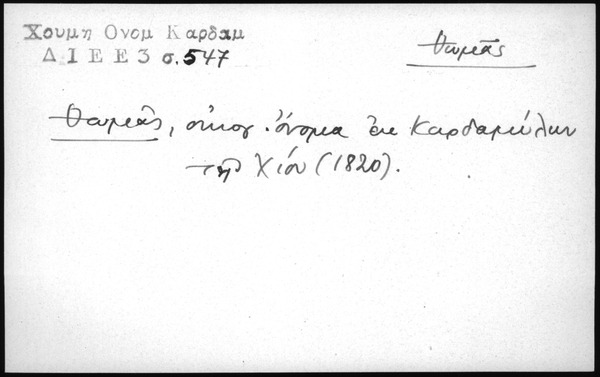 Χουμη Ονομ Καρδαμ
Δ Ι Ε Ε 3 σ. 547
Θωμεᾶς
Θωμεᾶς, οἰκογ. ὄνομα ἐκ Καρδαμύλων
τῆς Χίου (1820).